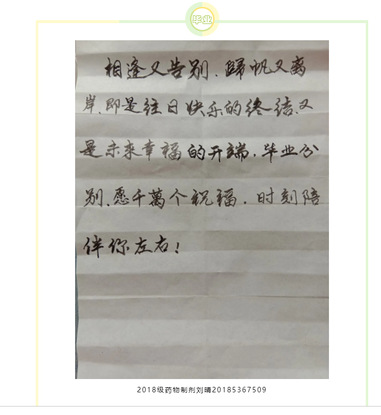 毕业
相逢又告别，歸帆又离
岸，即是往日快乐的终结，又
是未來幸福的开端，毕业分
别，愿千萬个祝福，时刻陪
伴你左右！
2018级药物制剂刘晴20185367509